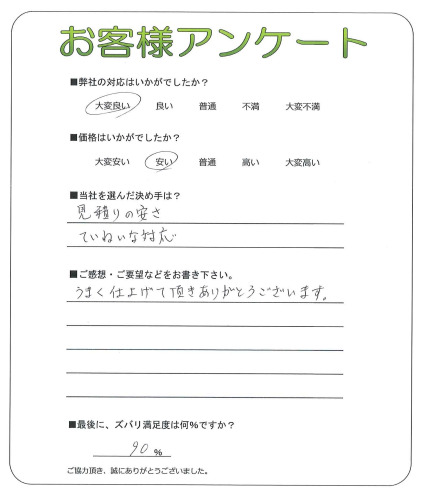 お客様アンケート
■弊社の対応はいかがでしたか？
大変良い 良い 普通 不満 大変不満
■価格はいかがでしたか？
大変安い 安い 普通 高い 大変高い
■当社を選んだ決め手は？
見積りの安さ
ていねいな対応
■ご感想・ご要望などをお書き下さい。
うまく仕上げて頂きありがとうございます。
■最後に、ズバリ満足度は何%ですか？
90 %
ご協力頂き、誠にありがとうございました。